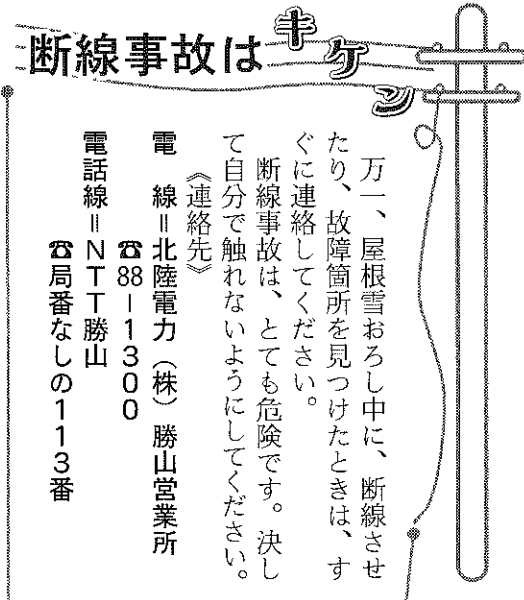 断線事故はキケン
　万一、屋根雪おろし中に、断線させ
たり、故障箇所を見つけたときは、す
ぐに連絡してください。
　断線事故は、とても危険です。決し
て自分で触れないようにしてください。
《連絡先》
電　線＝北陸電力（株）勝山営業所
☎88ー1300
電話線＝NTT勝山
☎局番なしの113番